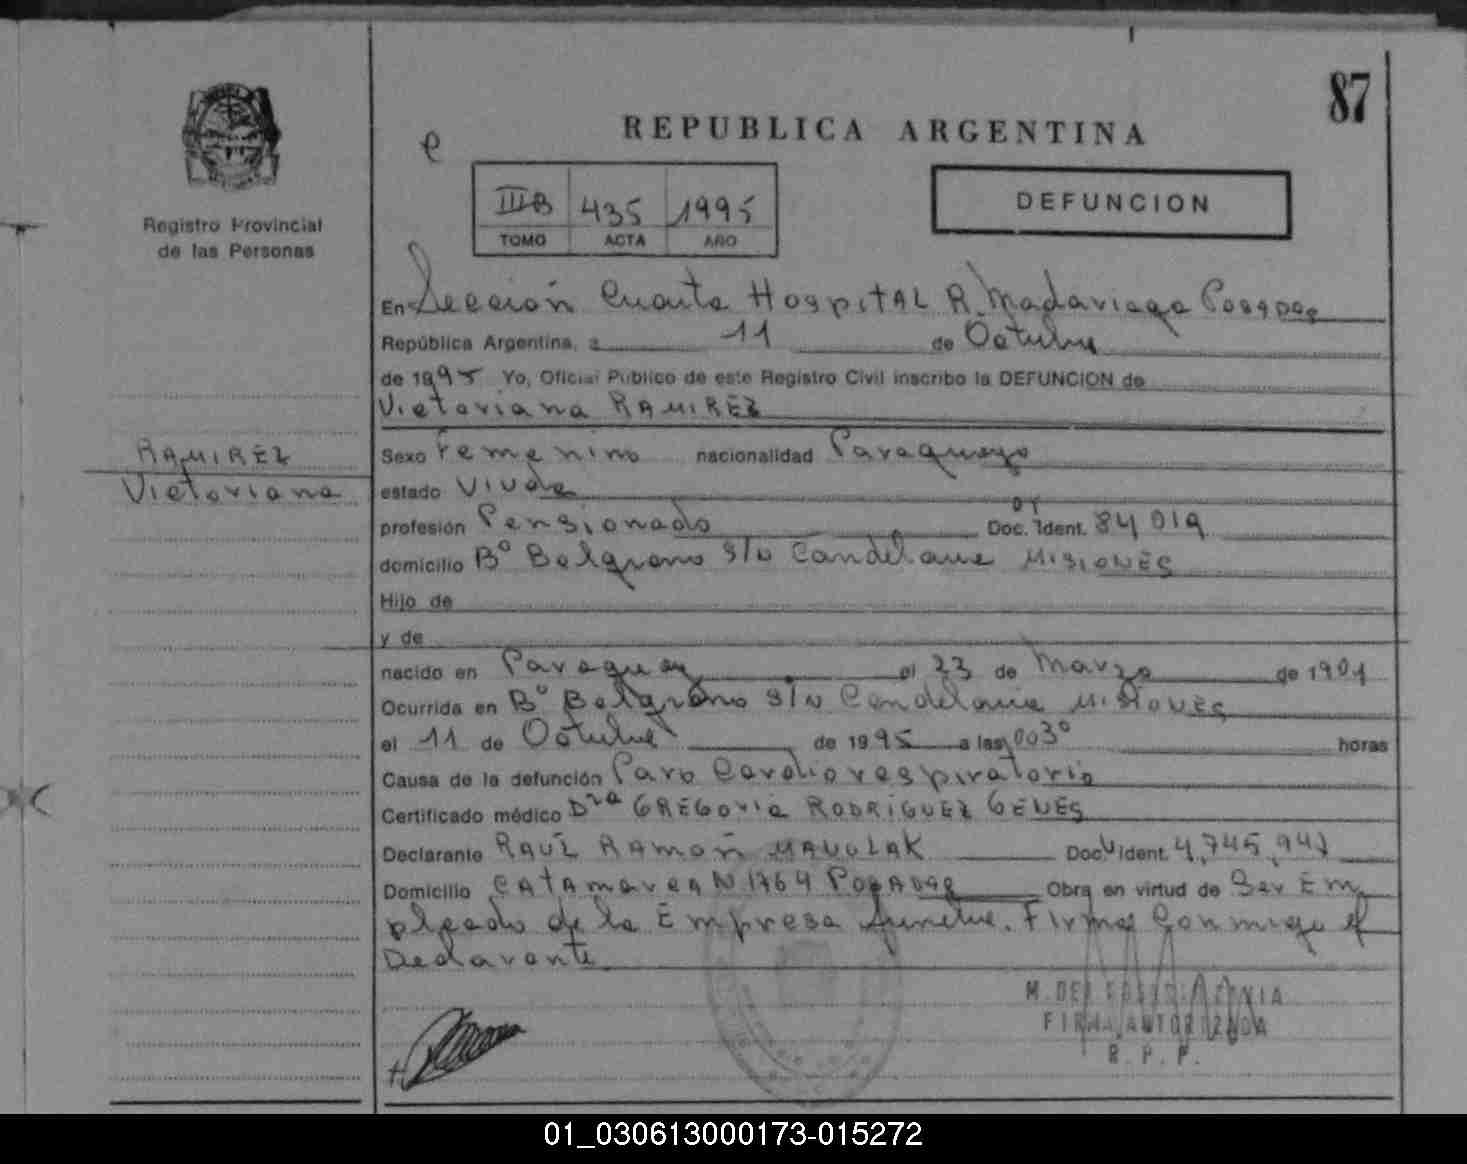 87
REPUBLICA ARGENTINA
e
IIIB 435 1995
TOMO ACTA AÑO
DEFUNCION
Registro Provincial
de las Personas
En Sección Cuarta Hospital R. Madariaga Posadas
República Argentina, a 11 de Octubre
de 1995 Yo, Oficial Público de este Registro Civil inscribo la DEFUNCION de
Victoriana RAMIREZ
RAMIREZ
Victoriana
Sexo Femenino nacionalidad Paraguaya
estado Viuda
profesión Pensionada Doc. Ident. 84019
domicilio Bº Belgrano S/N Candelaria MISIONES
Hijo de
y de
nacido en Paraguay el 23 de Marzo de 1901
Ocurrida en Bº Belgrano S/N Candelaria MISIONES
el 11 de Octubre de 1995 a las 0030 horas
Causa de la defunción Paro Cardiorespiratorio
Certificado médico Dra GREGORIA RODRIGUEZ GENES
Declarante RAÚL RAMÓN MANULAK Doc. Ident. 4,745,941
Domicilio CATAMARCA N 1764 POSADAS Obra en virtud de Ser Em
pleado de la Empresa funebre. Firma Conmigo el
Declarante
FIRMA AUTORIZADA
R. P. P.
01_030613000173-015272